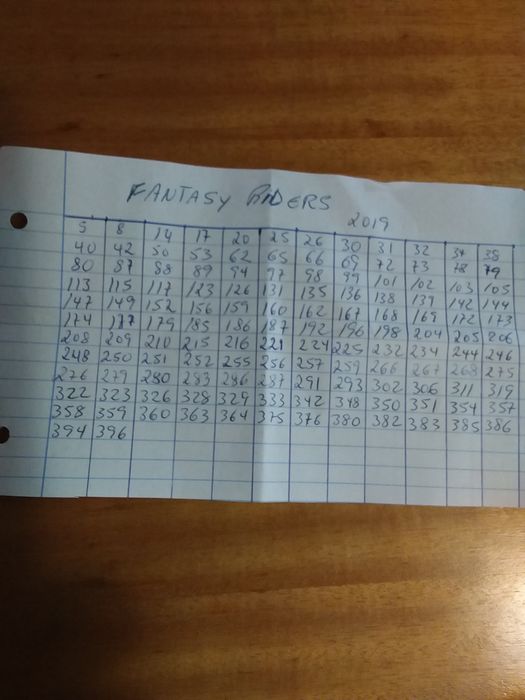 FANTASY RIDERS
2019
5 8 14 17 20 25 26 30 31 32 37 38
40 42 50 53 62 65 66 69 72 73 78 79
80 87 88 89 94 97 98 99 101 102 103 105
113 115 117 123 126 131 135 136 138 139 142 144
147 149 152 156 159 160 162 167 168 169 172 173
174 177 179 185 186 187 192 196 198 204 205 206
208 209 210 215 216 221 224 225 232 234 244 246
248 250 251 252 255 256 257 259 266 267 268 275
276 279 280 283 286 287 291 293 302 306 311 319
322 323 326 328 329 333 342 348 350 351 354 357
358 359 360 363 364 375 376 380 382 383 385 386
394 396